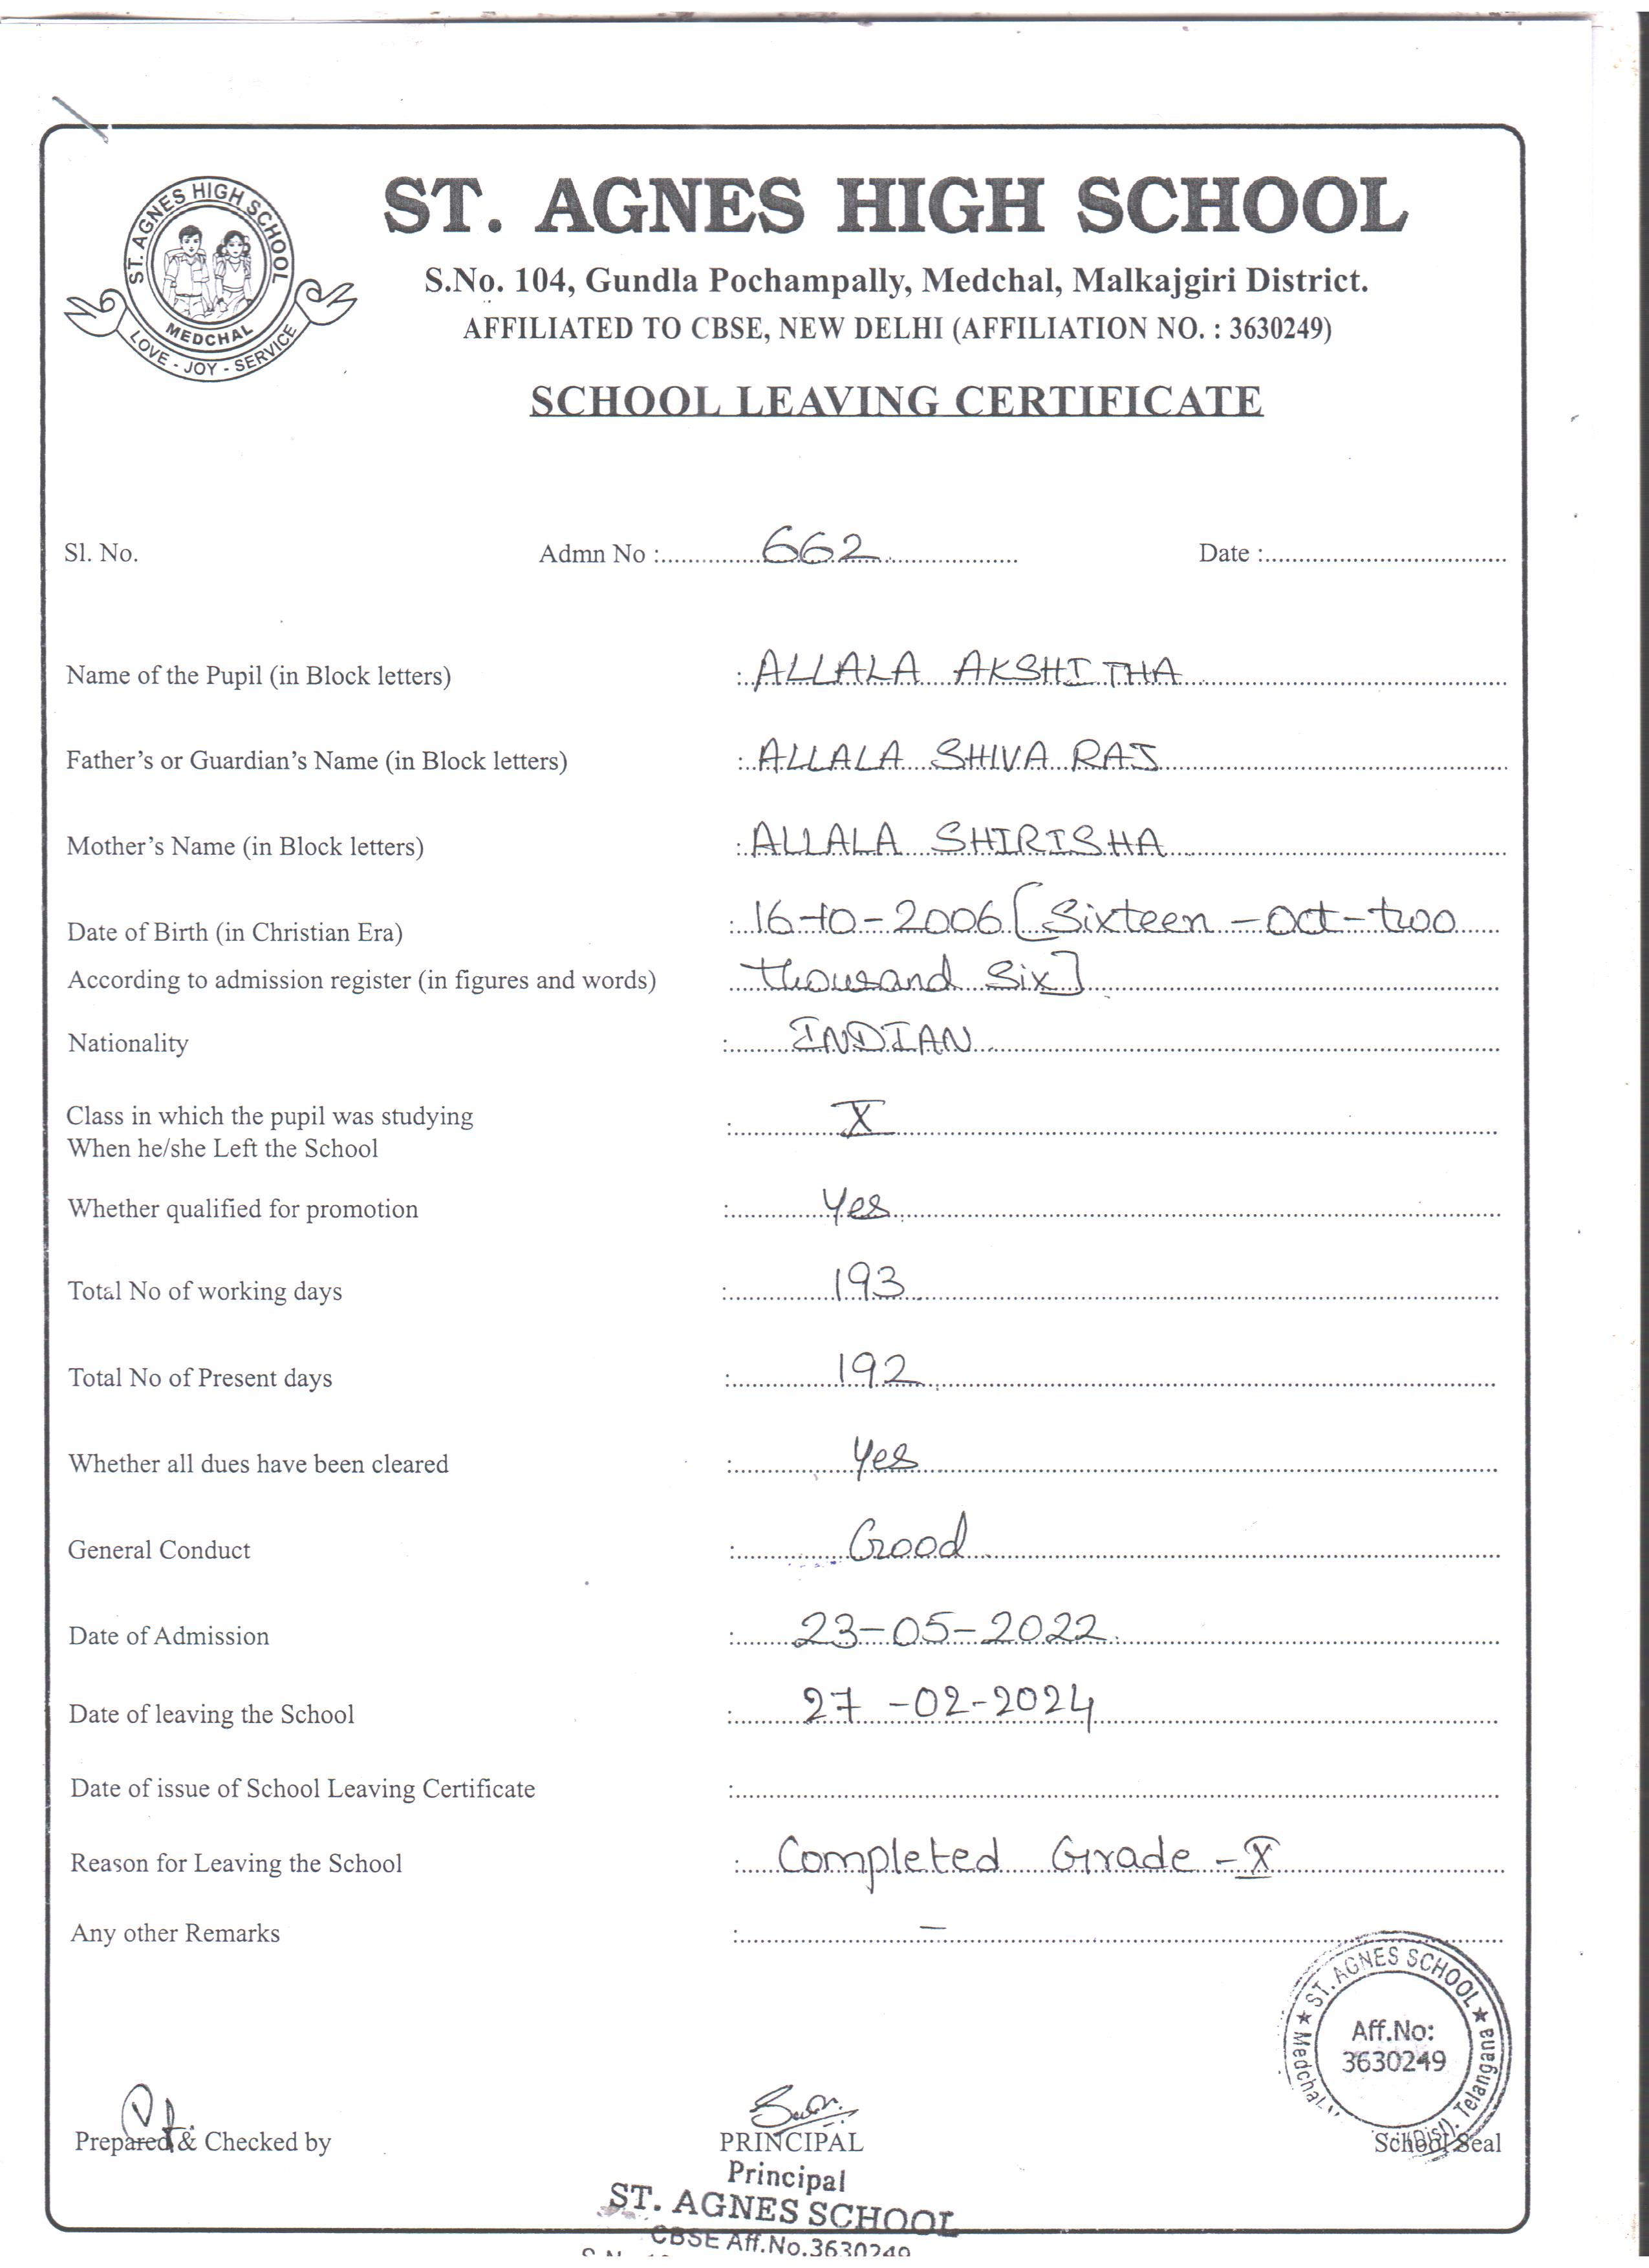 ST. AGNES HIGH SCHOOL
MEDCHAL
LOVE - JOY - SERVICE
ST. AGNES HIGH SCHOOL
S.No. 104, Gundla Pochampally, Medchal, Malkajgiri District.
AFFILIATED TO CBSE, NEW DELHI (AFFILIATION NO. : 3630249)
SCHOOL LEAVING CERTIFICATE
Sl. No. Admn No : 662 Date :
Name of the Pupil (in Block letters) : ALLALA AKSHITHA
Father's or Guardian's Name (in Block letters) : ALLALA SHIVA RAJ
Mother's Name (in Block letters) : ALLALA SHIRISHA
Date of Birth (in Christian Era) : 16-10-2006 [Sixteen - Oct - two
According to admission register (in figures and words) thousand Six]
Nationality : INDIAN
Class in which the pupil was studying : X
When he/she Left the School
Whether qualified for promotion : Yes
Total No of working days : 193
Total No of Present days : 192
Whether all dues have been cleared : Yes
General Conduct : Good
Date of Admission : 23-05-2022
Date of leaving the School : 27-02-2024
Date of issue of School Leaving Certificate :
Reason for Leaving the School : Completed Grade - X
Any other Remarks : –
ST. AGNES SCHOOL
Aff.No:
3630249
Medchal (Dist). Telangana
Prepared & Checked by PRINCIPAL School Seal
Principal
ST. AGNES SCHOOL
CBSE Aff.No.3630249